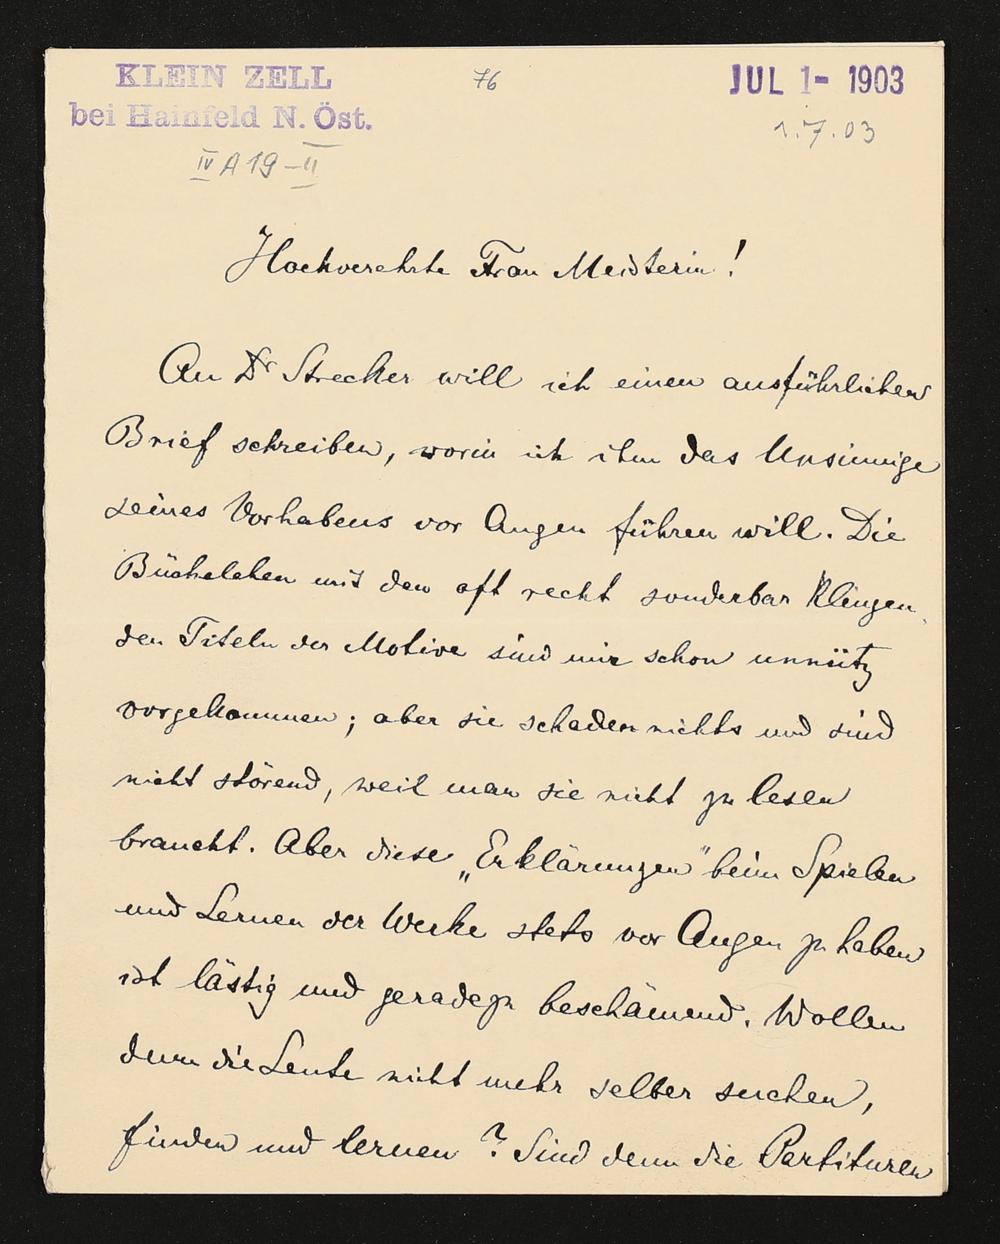 KLEIN ZELL
bei Hainfeld N. Öst.
76
JUL 1- 1903
1.7.03
IV A 19 - II
Hochverehrte Frau Meisterin!
An Dr Strecker will ich einen ausführlichen
Brief schreiben, worin ich ihm das Unsinnige
seines Vorhabens vor Augen führen will. Die
Büchelchen mit den oft recht sonderbar klingen-
den Titeln der Motive sind mir schon unnütz
vorgekommen; aber sie schaden nichts und sind
nicht störend, weil man sie nicht zu lesen
braucht. Aber diese „Erklärungen" beim Spielen
und Lernen der Werke stets vor Augen zu haben
ist lästig und geradezu beschämend. Wollen
denn die Leute nicht mehr selber suchen,
finden und lernen? Sind denn die Partituren